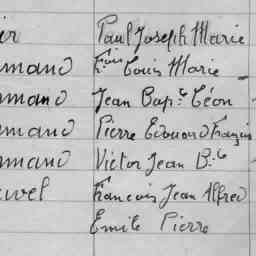 ir Paul Joseph Marie
mand F.ois Louis Marie
mand Jean Bap.te Léon
mand Pierre Edouard François
mand Victor Jean B.te
uvel François Jean Alfred
Emile Pierre